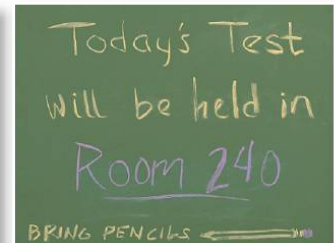 Today's Test
will be held in
Room 240
BRING PENCILS